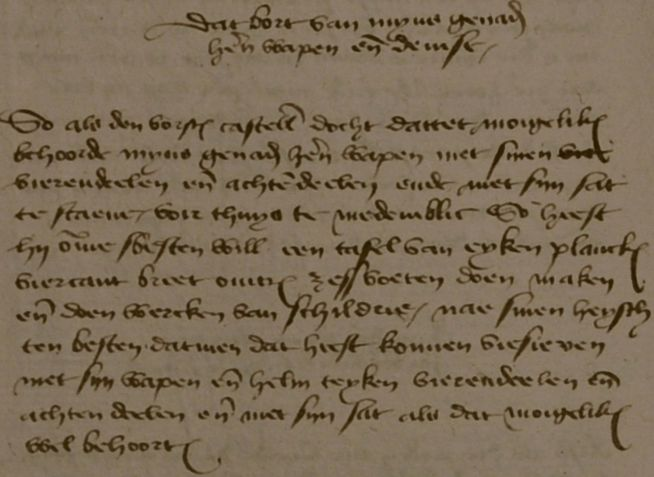 dat bort van myns genad
hern wapen en devise

So als den vorst castell docht dattet moigelik
behoorde myns genad hern wapen met sinen
vierendeelen en achtendeelen ende met sijn
te staene voir thuys te medemblic So heeft
hij om sbesten will een tafel van eyken planck
viercant breet omtr zess voeten doen maken
en doen wercken van schildrie nae sinen heysch
ten besten datmen dat heeft konnen visieren
met sijn wapen en helm teyken vierendeelen en
achtendeelen en met sijn als dat moigelik
wel behoort